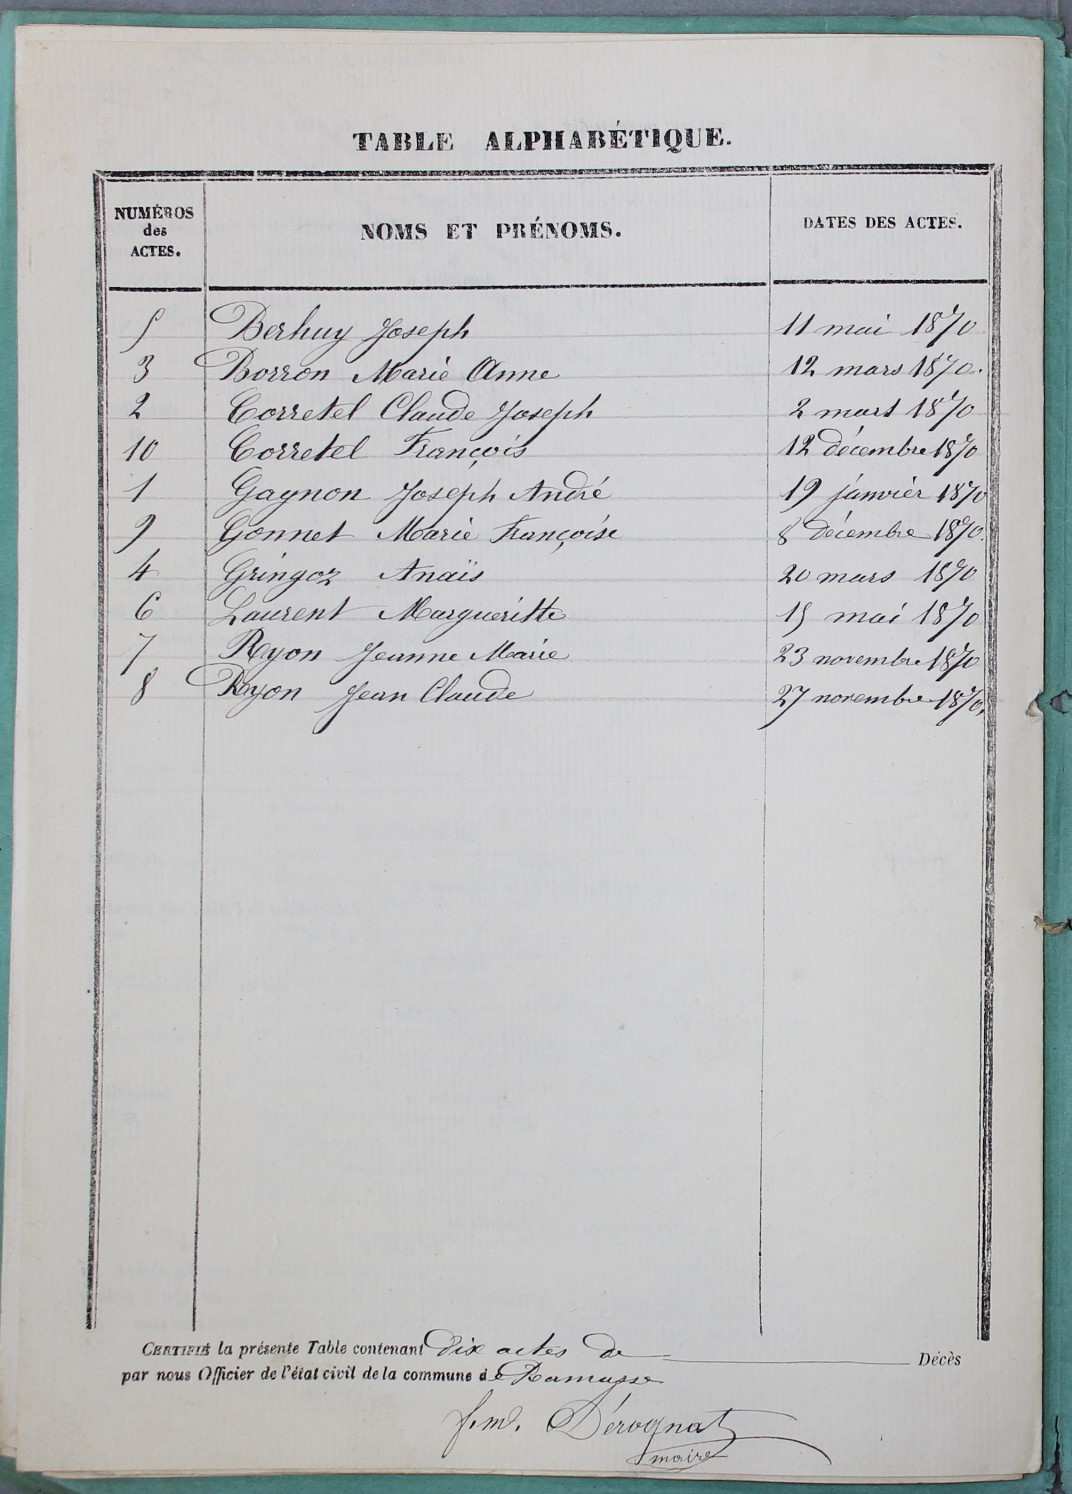 TABLE ALPHABÉTIQUE.
NUMÉROS des ACTES. NOMS ET PRÉNOMS. DATES DES ACTES.
5 Berhuy Joseph 11 mai 1870
3 Borron Marie Anne 12 mars 1870.
2 Corretel Claude Joseph 2 mars 1870
10 Corretel François 12 décembre 1870
1 Gagnon Joseph André 19 janvier 1870
9 Gonnet Marie Françoise 8 décembre 1870.
4 Gringoz Anaïs 20 mars 1870
6 Laurent Margueritte 15 mai 1870
7 Rayon Jeanne Marie 23 novembre 1870
8 Rayon Jean Claude 27 novembre 1870,
CERTIFIÉ la présente Table contenant dix actes de Décès
par nous Officier de l'état civil de la commune de Ramasse
f. m. Dérognat
maire